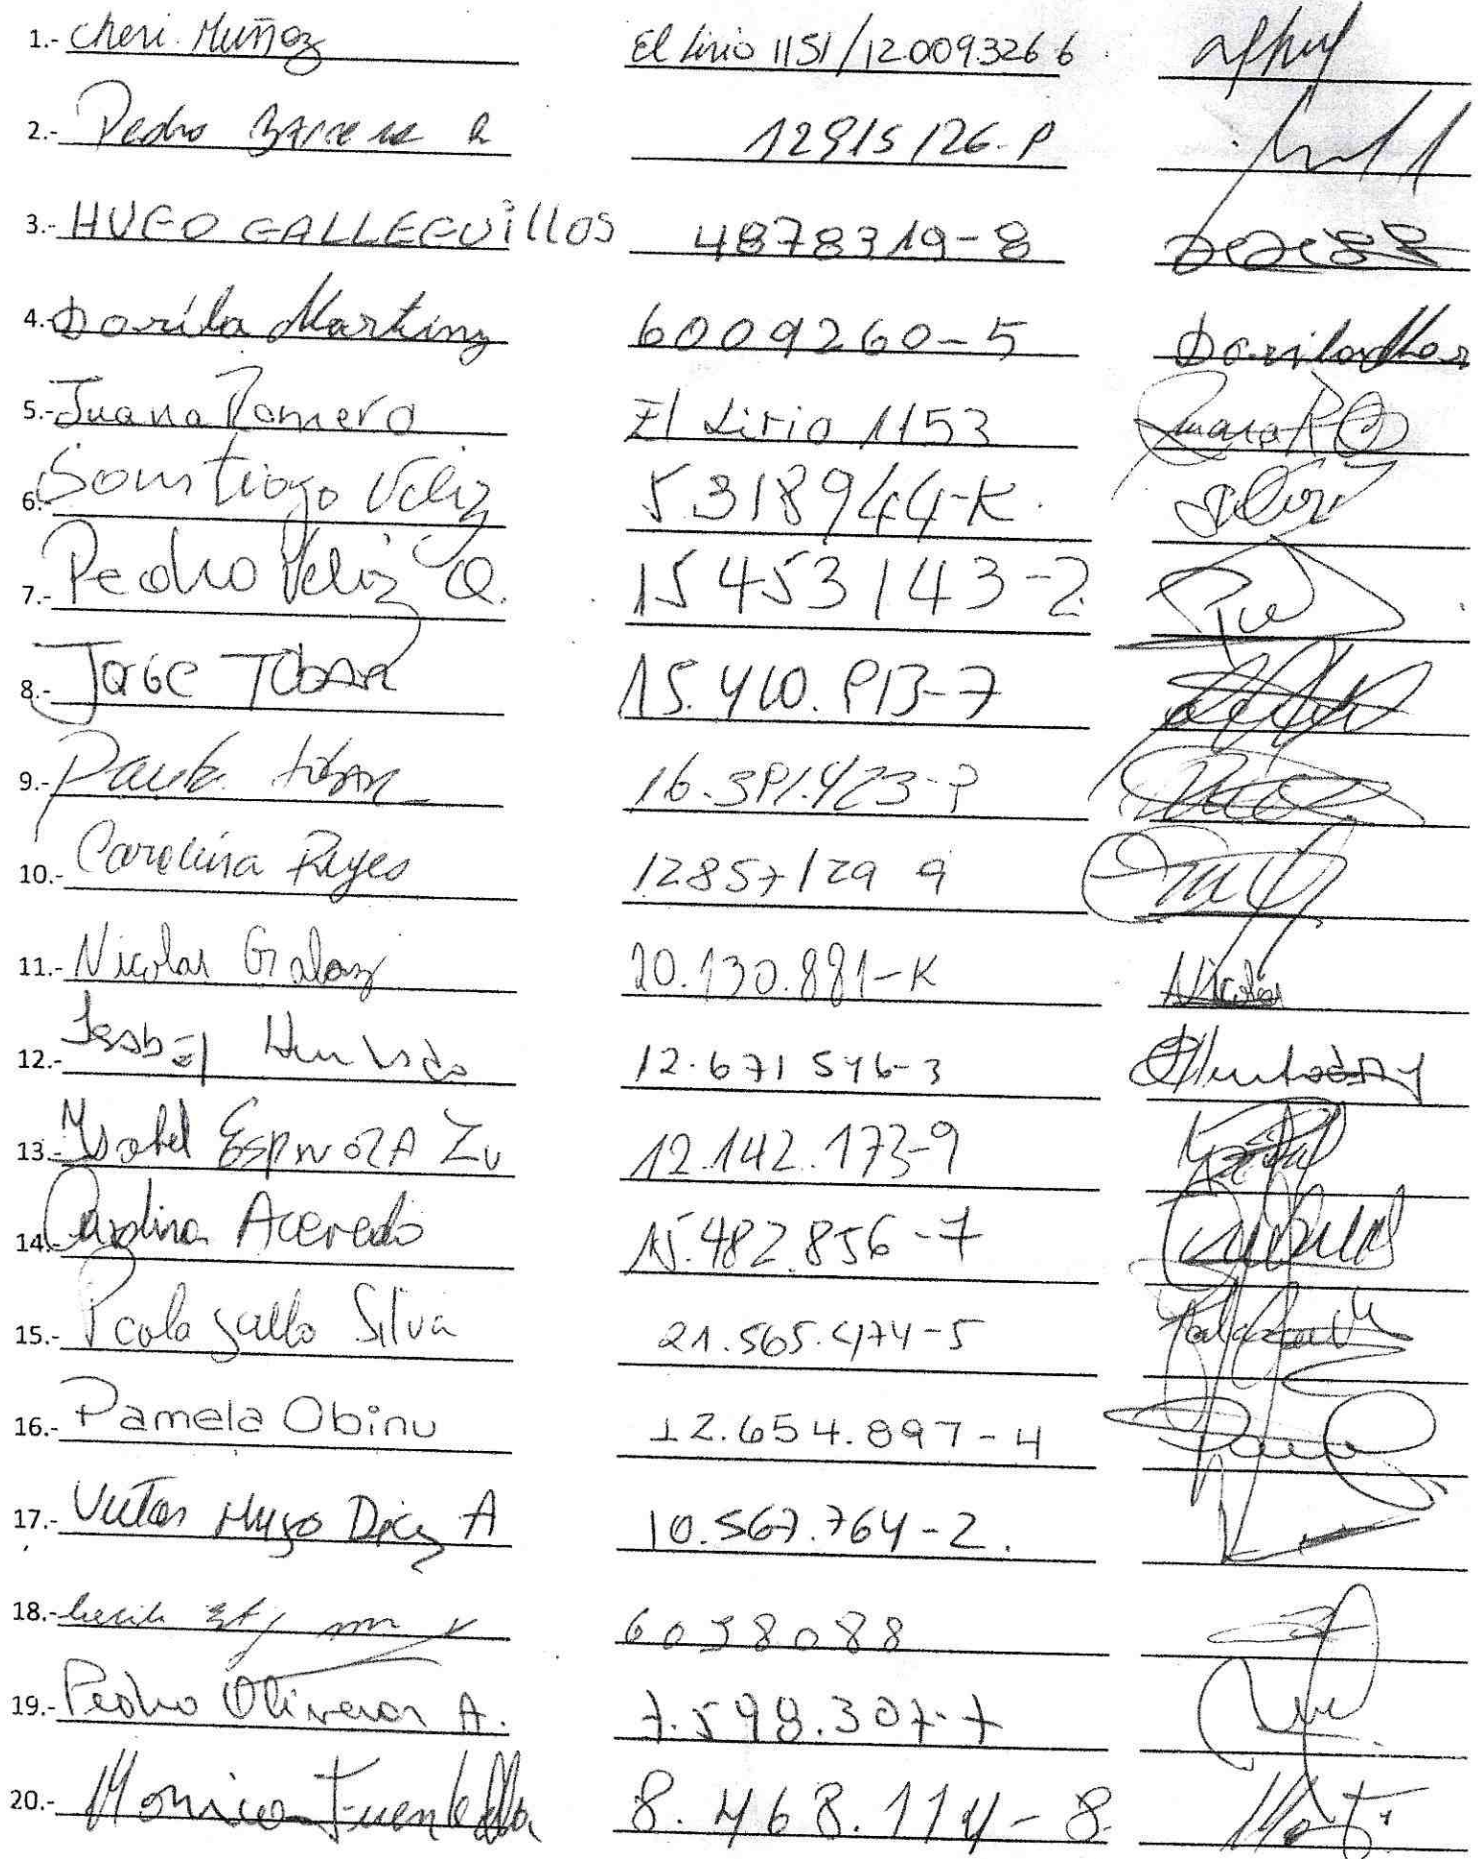 1.- Cheri Muñoz El Lirio 1151/12.0093266
2.- Pedro R 12915126-P
3.- HUGO GALLEGUILLOS 4878319-8
4.- Dorila Martinz 6009260-5 Dorila Mar
5.- Juana Romero El Lirio 1153 Juana R
6.- Santiago Veliz 5318944-K
7.- Pedro Veliz Q. 15453143-2
8.- JORGE TOBAR 15.410.913-7
9.- Tobar
10.- Carolina Reyes 12857129 9
11.- Nicolas Galaz 20.130.881-K Nicolás
12.- Isabel Hurtado 12.671 546-3
13.- Ysabel ESPINOZA Zu 12.142.173-9
14.- Carolina Acevedo 15.482.856-7
15.- Gallo Silva 21.565.474-5
16.- Pamela Obinu 12.654.897-4
17.- Victor Hugo Diaz A 10.567.764-2.
18.- 6038088
19.- Pedro Olivares A. 7.598.307-7
20.- Monica Fuentealba 8.468.114-8